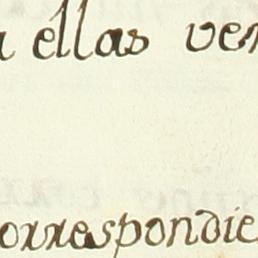 a ellas ven
orrespondie